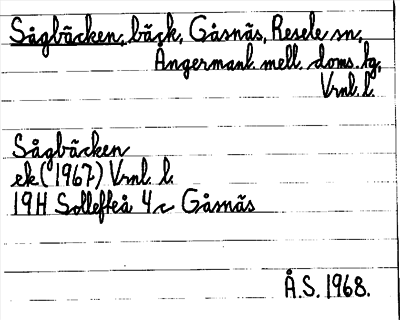 Sågbäcken, bäck, Gåsnäs, Resele sn,
Ångermanl. mell. doms. kg,
Vrnl. l.
Sågbäcken
ek (1967) Vrnl. l.
19H Sollefteå 4 c Gåsnäs
Å.S. 1968.